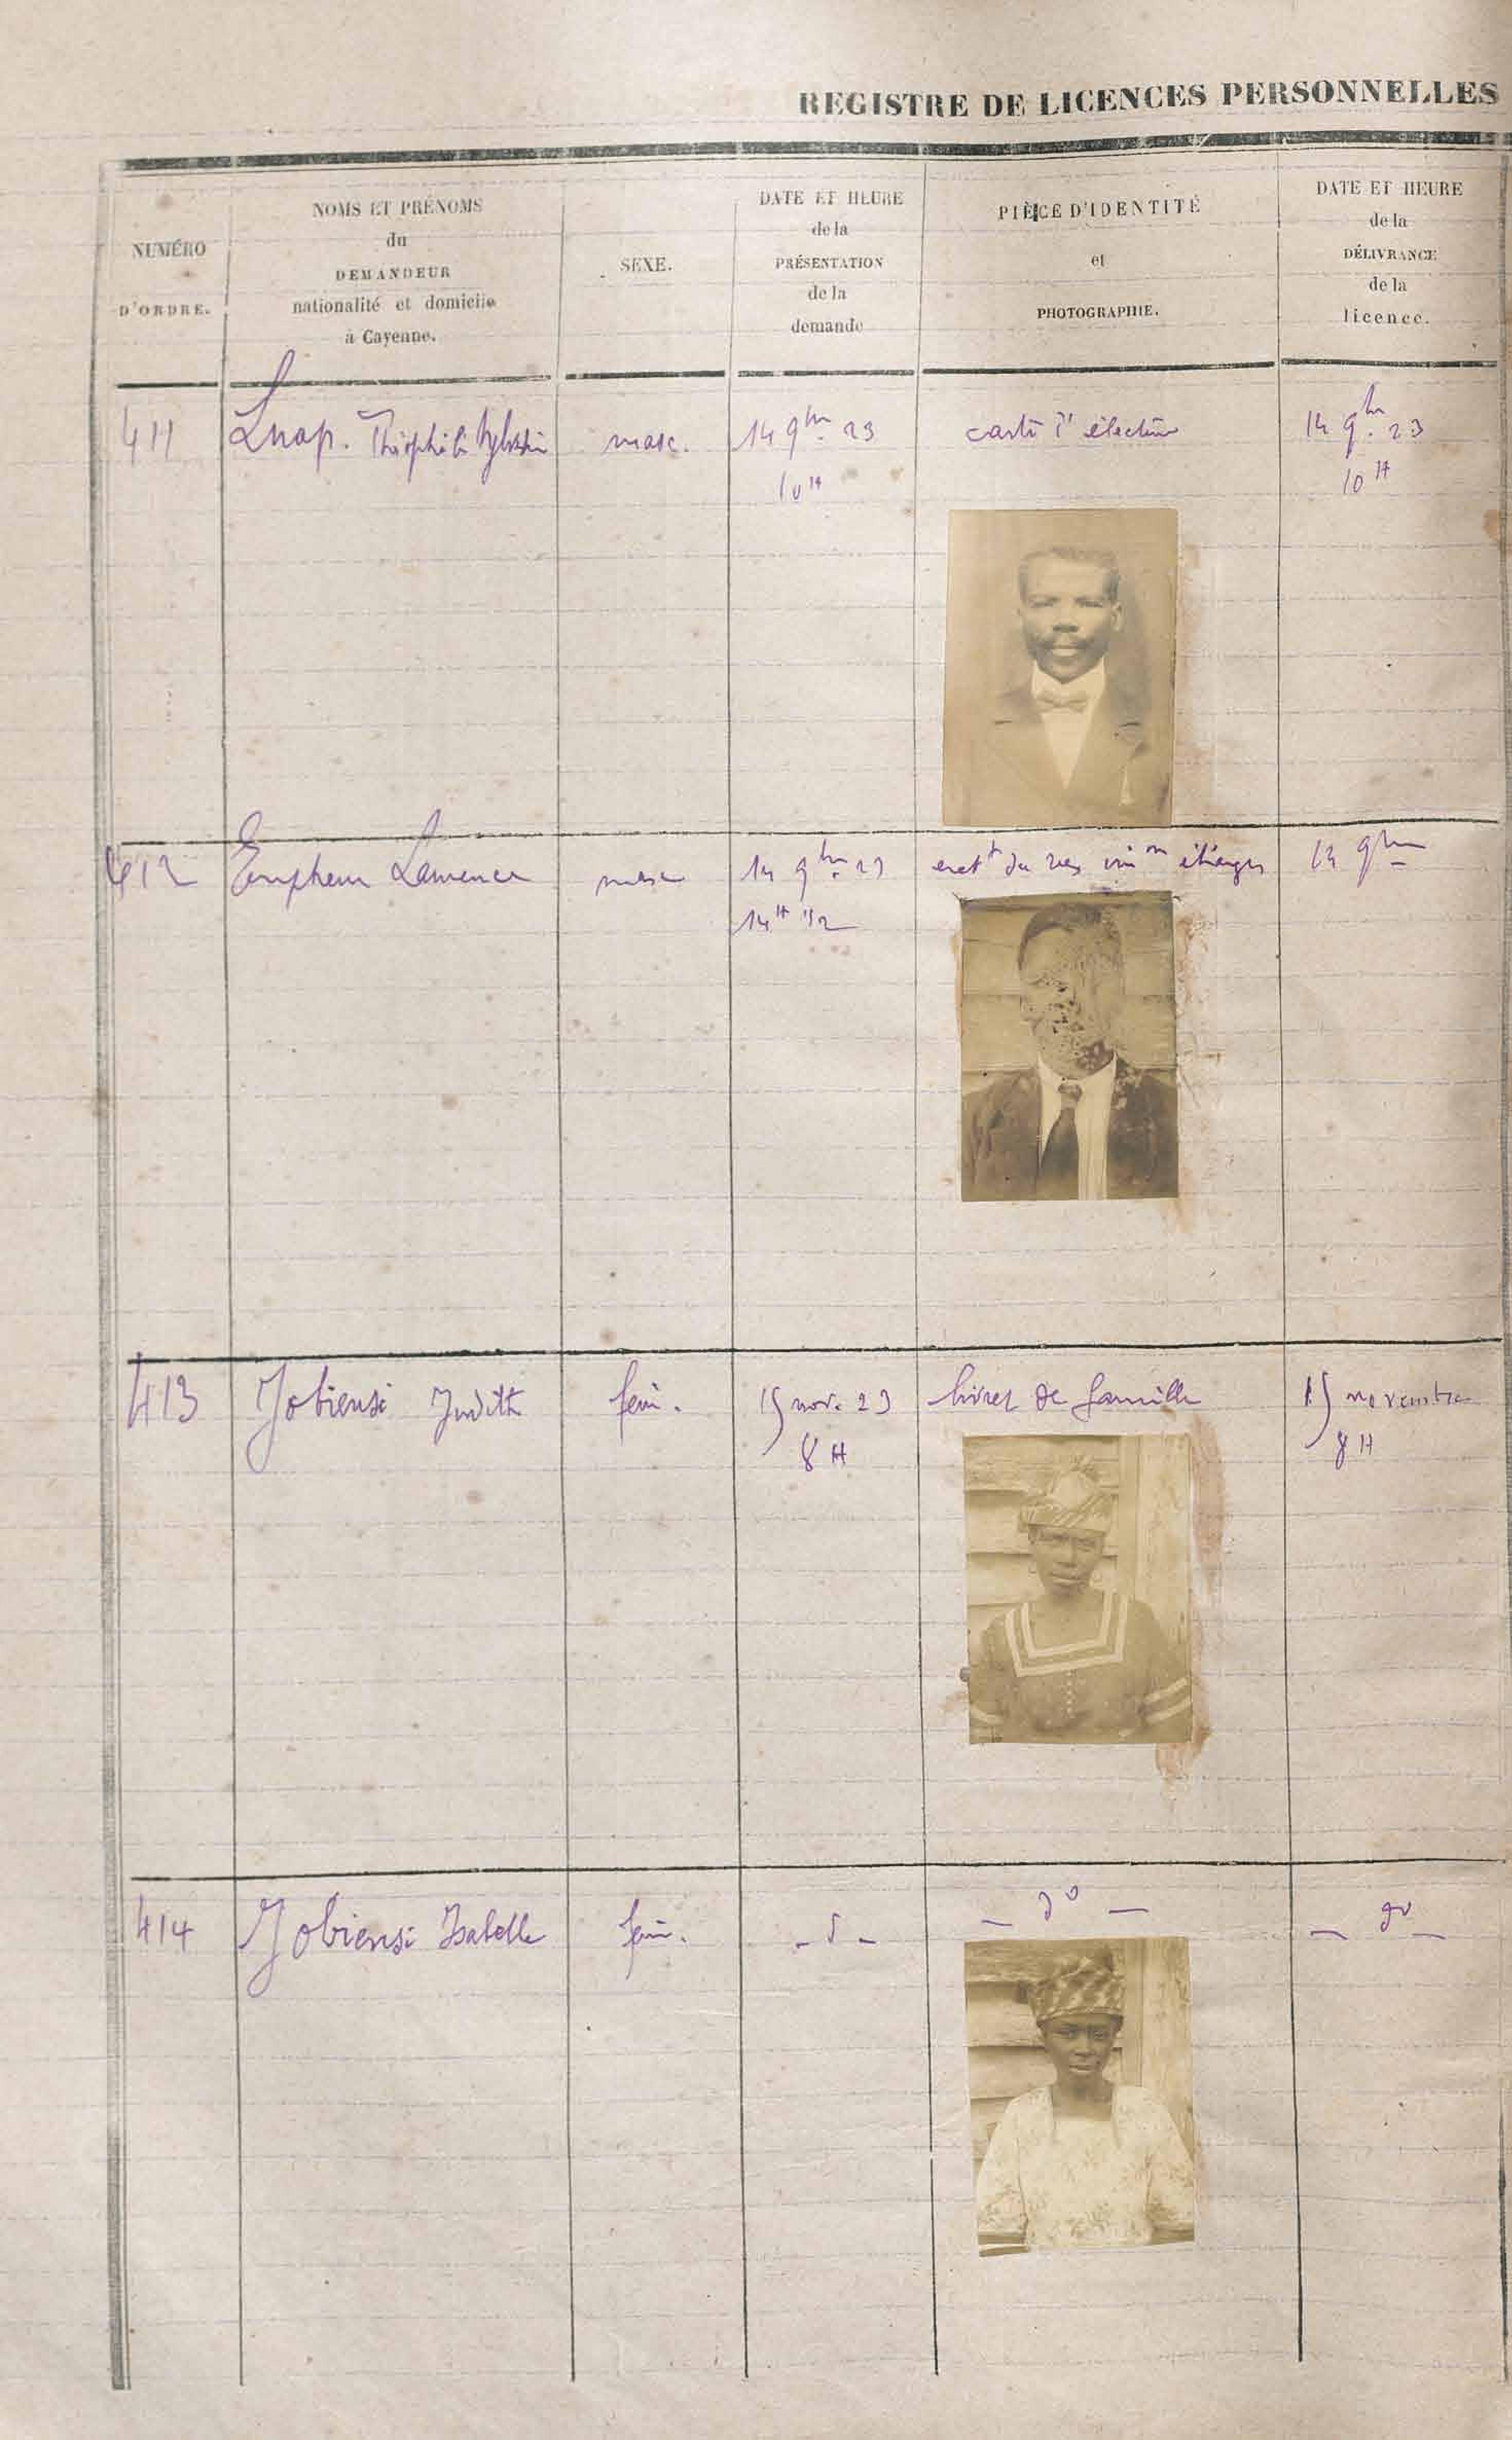 REGISTRE DE LICENCES PERSONNELLES
NUMÉRO
D'ORDRE.
NOMS ET PRÉNOMS
du
DEMANDEUR
nationalité et domicile
à Cayenne.
SEXE.
DATE ET HEURE
de la
PRÉSENTATION
de la
demande
PIÈCE D'IDENTITÉ
et
PHOTOGRAPHIE.
DATE ET HEURE
de la
DÉLIVRANCE
de la
licence.
411
masc.
14 9bre 23
10 H
carte d'électeur
14 9bre 23
10 H
412
masc
14 9bre 23
14 H 1/2
étranger
14 9bre
413
Jobiensi Judith
fém.
15 nov. 23
8 H
livret de famille
15 novembre
8 H
414
Jobiensi Isabelle
fém.
— do —
— do —